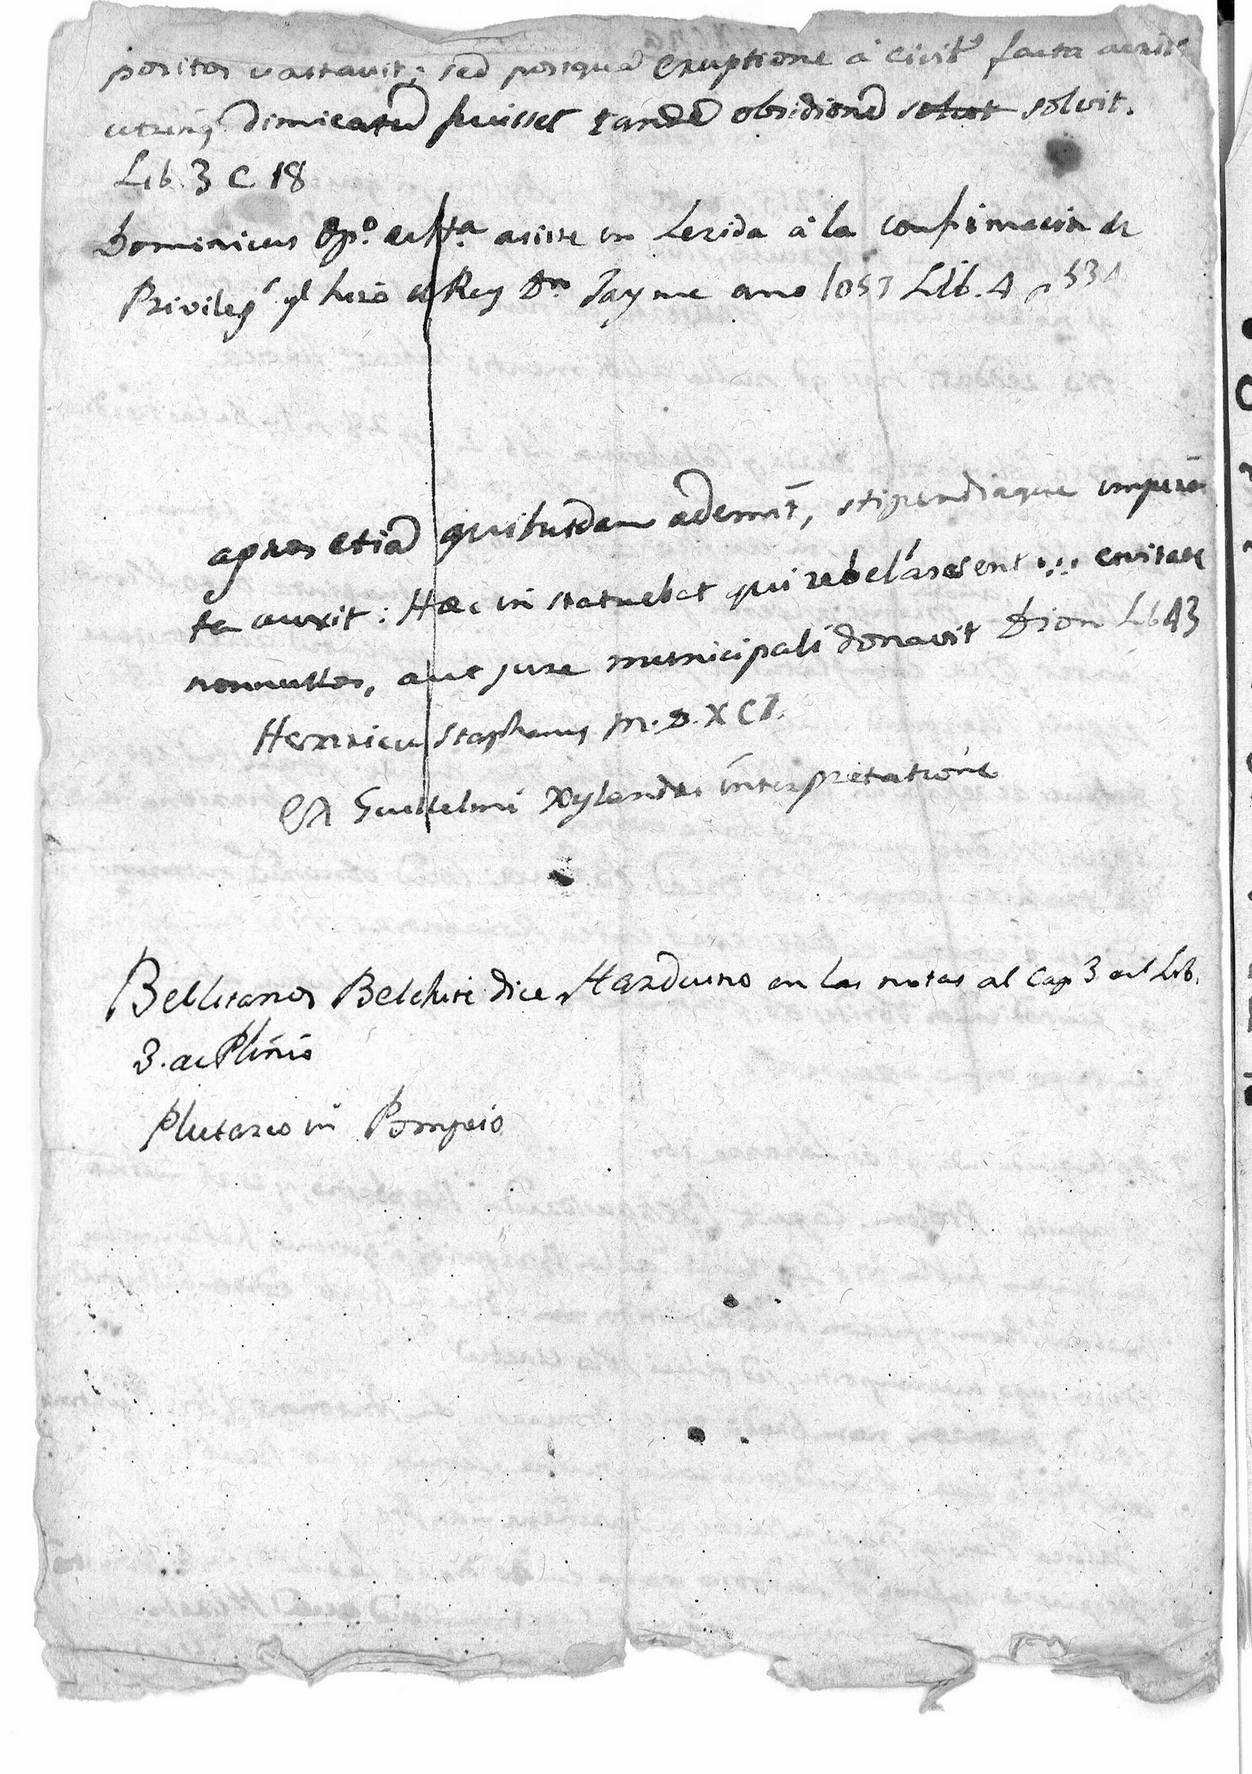 positos vastavit; sed postquã eruptione â civit.s facta acrit.
utrinq. dimicatũ fuisset tandẽ obsidionẽ solvit solvit.
Lib. 3 C 18
Dominicus Op.º de H.ª asiste en Lerida â la confirmacion de
Privileg.s q.l hizo el Rey Dn Jayme ano Lib. 4
agros etiã quibusdam ademit, stipendiaque impera
ta auxit: Haec in statuebat qui rebelarasent ... civitate
nonnullos, aut jure municipali donavit Dion Lb 43
Henricus Stephanus M.D.XCI.
Ex Guillelmi Xylandri interpretatione
Bellitanos Belchite dice Harduino en las notas al Cap 3 del Lib.
3. de Plinio
Plutarco in Pompeio